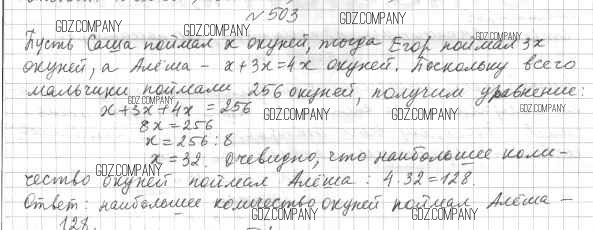 №503
Пусть Саша поймал x окуней, тогда Егор поймал 3x
окуней, а Алёша - x+3x=4x окуней. Поскольку всего
мальчики поймали 256 окуней, получим уравнение:
x+3x+4x=256
8x=256
x=256:8
x=32. Очевидно, что наибольшее коли-
чество окуней поймал Алёша: 4·32=128.
Ответ: наибольшее количество окуней поймал Алёша -
128.
GDZ.COMPANY
GDZ.COMPANY
GDZ.COMPANY
GDZ.COMPANY
GDZ.COMPANY
GDZ.COMPANY
GDZ.COMPANY
GDZ.COMPANY
GDZ.COMPANY
GDZ.COMPANY
GDZ.COMPANY
GDZ.COMPANY
GDZ.COMPANY